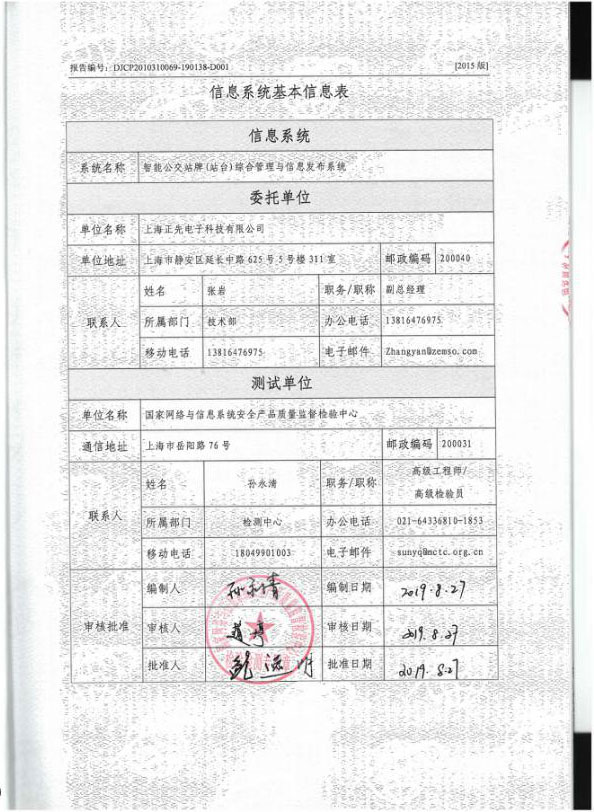 报告编号：DJCP2010310069-190138-D001 [2015 版]
信息系统基本信息表
信息系统
系统名称 智能公交站牌(站台)综合管理与信息发布系统
委托单位
单位名称 上海正先电子科技有限公司
单位地址 上海市静安区延长中路 625 号 5 号楼 311 室 邮政编码 200040
联系人
姓名 张岩 职务/职称 副总经理
所属部门 技术部 办公电话 13816476975
移动电话 13816476975 电子邮件 Zhangyan@zemso.com
测试单位
单位名称 国家网络与信息系统安全产品质量监督检验中心
通信地址 上海市岳阳路 76 号 邮政编码 200031
联系人
姓名 孙永清 职务/职称 高级工程师/
高级检验员
所属部门 检测中心 办公电话 021-64336810-1853
移动电话 18049901003 电子邮件 sunyq@mctc.org.cn
审核批准
编制人 孙永清 编制日期 2019.8.27
审核人 编制日期 2019.8.27
批准人 批准日期 2019.8.27